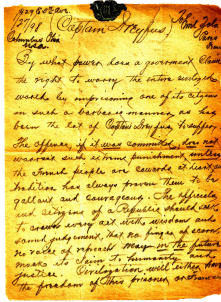 929 E 5th Ave.
1/27/98 (Captain Dreyfus) Emil Zola
Columbus Ohio Paris
USA.
By what power does a government claim
the right to worry the entire civilized
world by imprisoning one of its citizens
in such a barbarous manner as has
been the lot of Captain Dreyfus to suffer.
The offense, if it was committed, does not
warrant such extreme punishment unless
the French people are cowards at heart and
tradition has always proven them to be
gallant and courageous. The officials
and citizens of a Republic should act
to crown every act with wisdom and
sound judgement, that no finger of scorn,
no voice of reproach may in the future
mark its claim to humanity and
justice. Civilization will either
the freedom of this prisoner or France